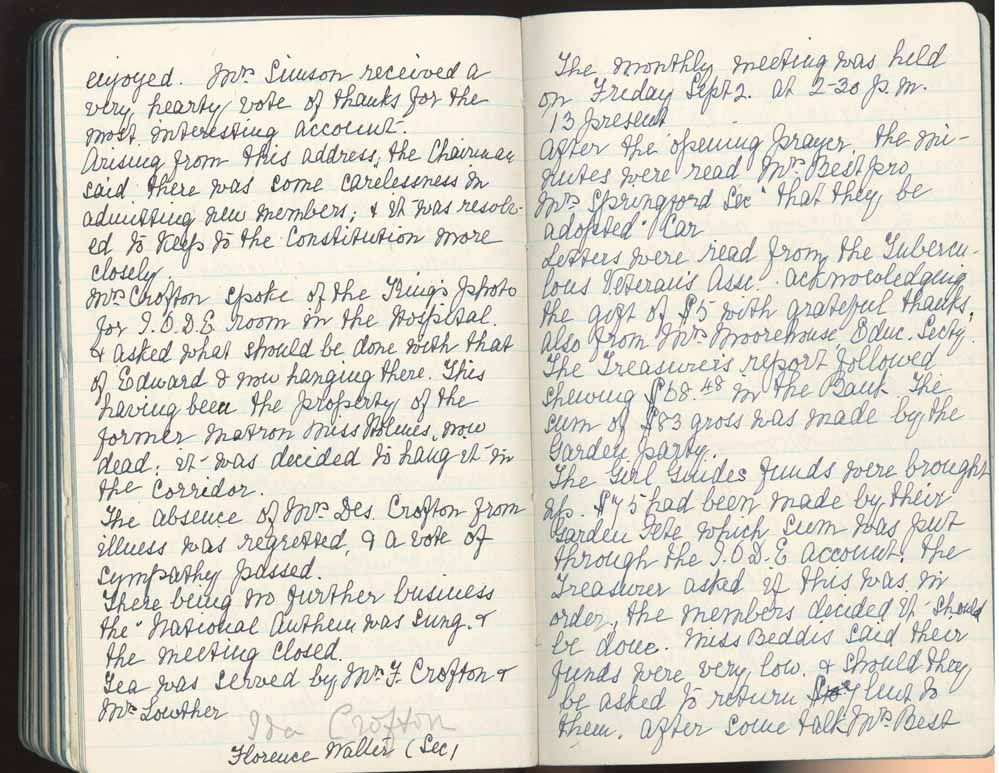 enjoyed. Mrs Simson received a
very hearty vote of thanks for the
most interesting account.
Arising from this address, the Chairman
said there was some carelessness in
admitting new members; & it was resolv-
ed to keep to the Constitution more
closely.
Mrs Crofton spoke of the King's photo
for I.O.D.E. room in the Hospital.
& asked what should be done with that
of Edward 8 now hanging there. This
having been the property of the
former Matron Miss Holmes, now
dead; it was decided to hang it in
the corridor.
The absence of Mrs Des. Crofton from
illness was regretted, & a vote of
sympathy passed.
There being no further business
the National Anthem was sung. &
the meeting closed.
Tea was served by Mrs F. Crofton &
Mrs Lowther
Ida Crofton
Florence Walter (Sec)
The monthly meeting was held
on Friday Sept 2. at 2-30 p.m.
13 present
After the opening prayer, the mi-
nutes were read Mrs Best pro
Mrs Springford Sec "that they be
adopted" Car
Letters were read from the Tubercu-
lous Veterans Assn. acknowledging
the gift of $5 with grateful thanks,
also from Mrs Moorehouse Educ. Secty.
The Treasurer's report followed
shewing $68.48 in the Bank. The
sum of $83 gross was made by the
Garden party.
The Girl Guides funds were brought
up. $75 had been made by their
Garden Fete which sum was put
through the I.O.D.E account. the
Treasurer asked if this was in
order, the members decided it should
be done. Miss Beddis said their
funds were very low. & should they
be asked to return lent to
them. After some talk Mrs Best